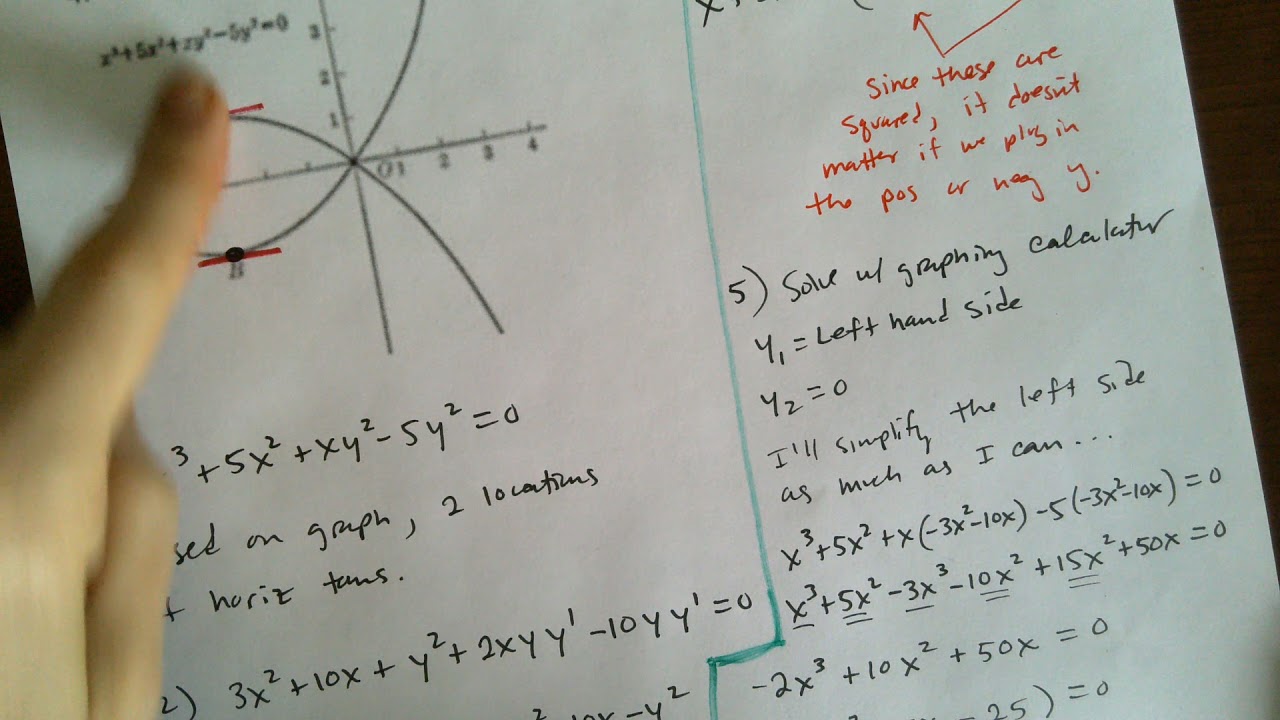 x³+5x²+xy²−5y²=0
3
2
1
O 1 2 3 4
B
³+5x²+xy²-5y²=0
sed on graph, 2 locations
horiz tans.
2) 3x²+10x+y²+2xyy'-10yy'=0
-y²
x
since these are
squared, it doesn't
matter if we plug in
the pos or neg y.
5) Solve w/ graphing calculator
y₁ = Left hand side
y₂ = 0
I'll simplify the left side
as much as I can...
x³+5x²+x(-3x²-10x)-5(-3x²-10x)=0
x³+5x²-3x³-10x²+15x²+50x=0
-2x³+10x²+50x=0
-25)=0